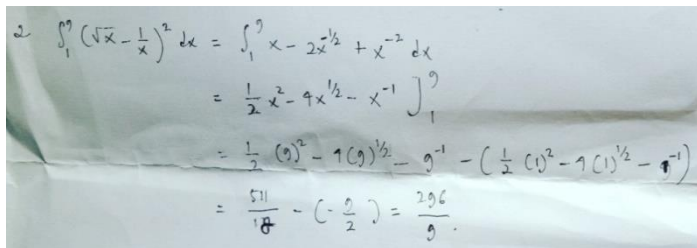 2 ∫₁⁹ (√x - 1/x)² dx = ∫₁⁹ x - 2x^(-1/2) + x^(-2) dx
= 1/2 x² - 4x^(1/2) - x^(-1) ]₁⁹
= 1/2 (9)² - 4(9)^(1/2) - 9^(-1) - (1/2 (1)² - 4(1)^(1/2) - 1^(-1))
= 511/18 - (-9/2) = 296/9.